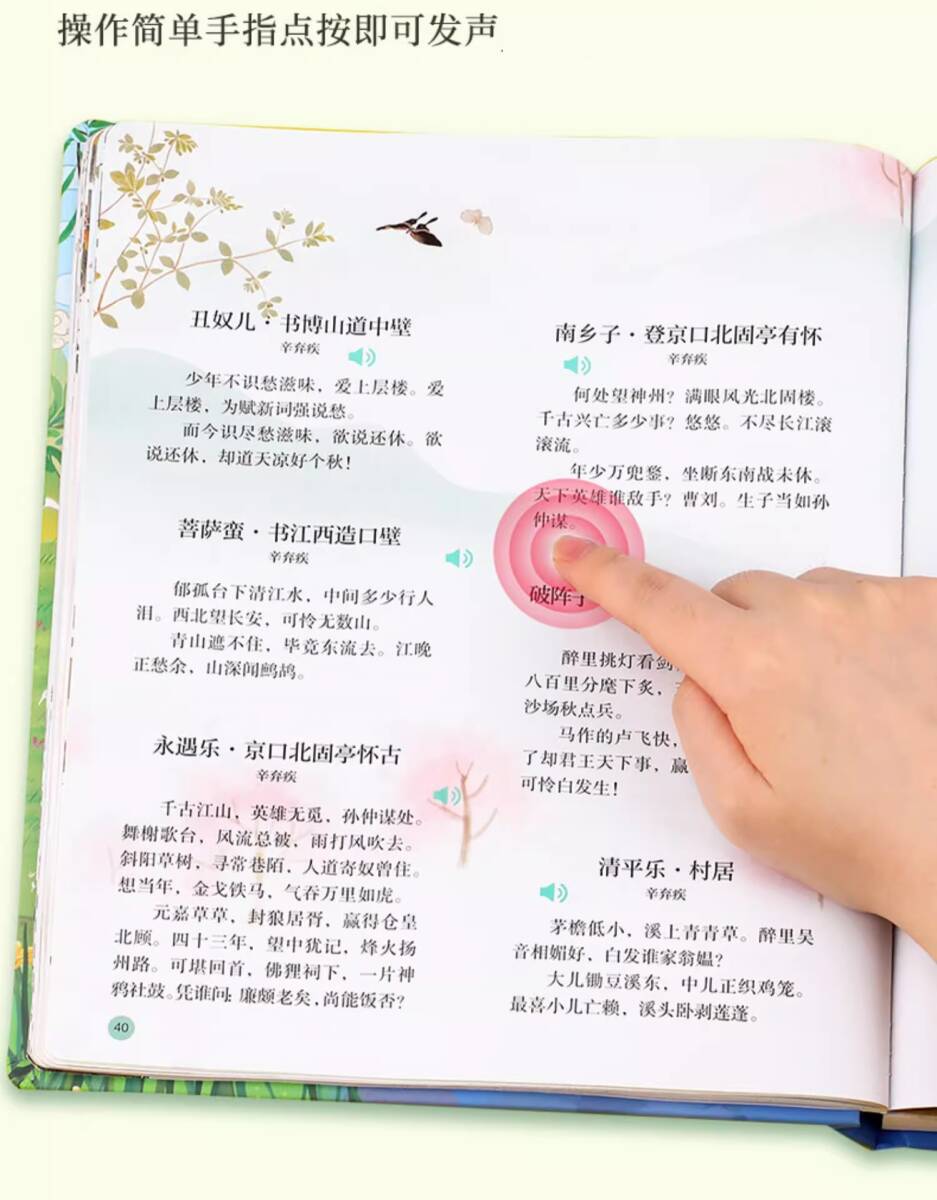 操作简单手指点按即可发声
丑奴儿·书博山道中壁
辛弃疾
少年不识愁滋味，爱上层楼。爱
上层楼，为赋新词强说愁。
而今识尽愁滋味，欲说还休。欲
说还休，却道天凉好个秋！
菩萨蛮·书江西造口壁
辛弃疾
郁孤台下清江水，中间多少行人
泪。西北望长安，可怜无数山。
青山遮不住，毕竟东流去。江晚
正愁余，山深闻鹧鸪。
永遇乐·京口北固亭怀古
辛弃疾
千古江山，英雄无觅，孙仲谋处。
舞榭歌台，风流总被，雨打风吹去。
斜阳草树，寻常巷陌，人道寄奴曾住。
想当年，金戈铁马，气吞万里如虎。
元嘉草草，封狼居胥，赢得仓皇
北顾。四十三年，望中犹记，烽火扬
州路。可堪回首，佛狸祠下，一片神
鸦社鼓。凭谁问：廉颇老矣，尚能饭否？
40
南乡子·登京口北固亭有怀
辛弃疾
何处望神州？满眼风光北固楼。
千古兴亡多少事？悠悠。不尽长江滚
滚流。
年少万兜鍪，坐断东南战未休。
天下英雄谁敌手？曹刘。生子当如孙
仲谋。
破阵子
醉里挑灯看剑，
八百里分麾下炙，
沙场秋点兵。
马作的卢飞快，
了却君王天下事，赢
可怜白发生！
清平乐·村居
辛弃疾
茅檐低小，溪上青青草。醉里吴
音相媚好，白发谁家翁媪？
大儿锄豆溪东，中儿正织鸡笼。
最喜小儿亡赖，溪头卧剥莲蓬。